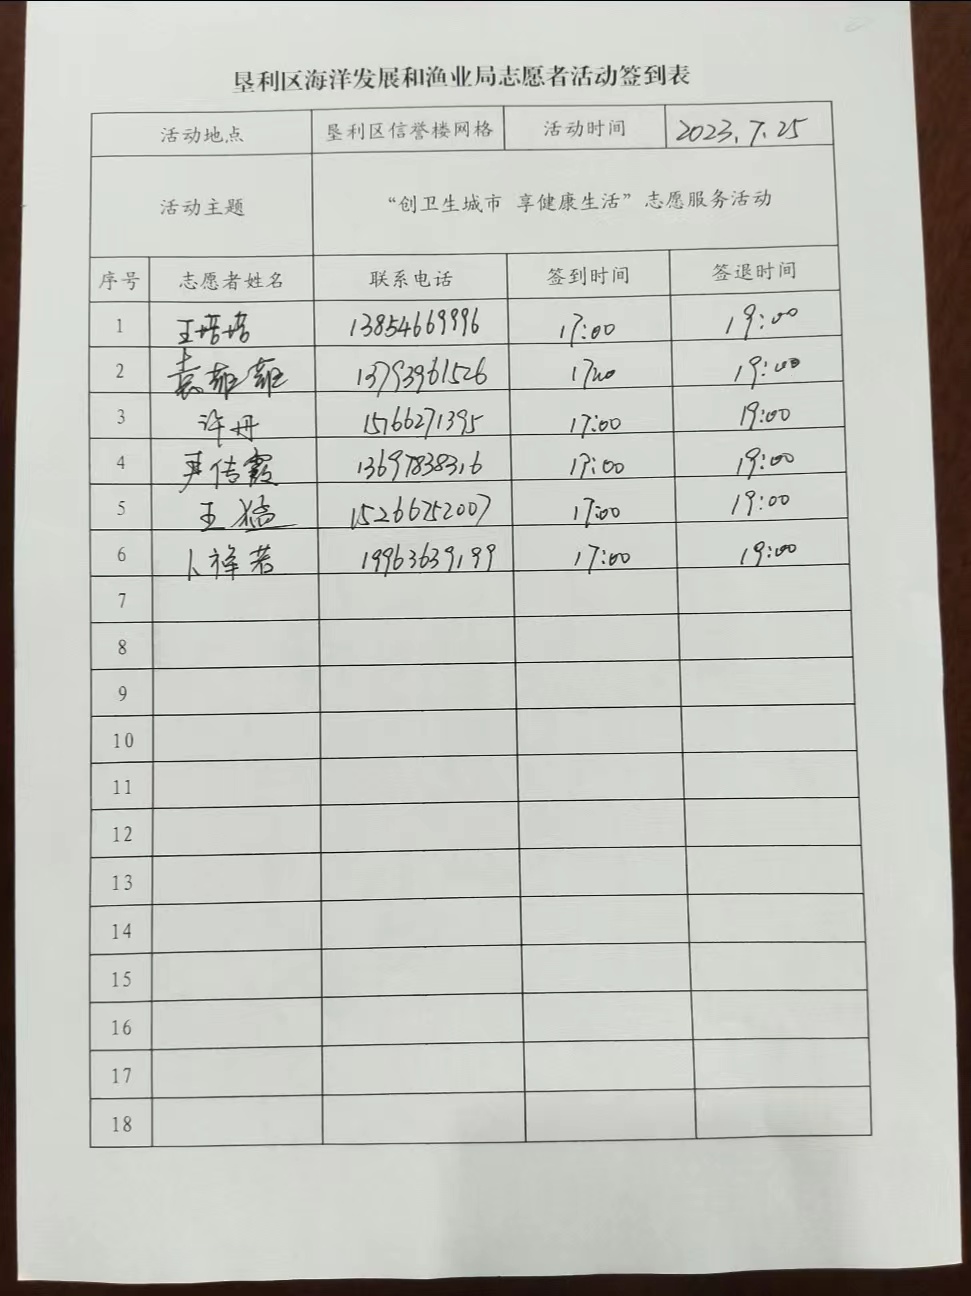 垦利区海洋发展和渔业局志愿者活动签到表
活动地点 垦利区信誉楼网格 活动时间 2023.7.25
活动主题 “创卫生城市 享健康生活”志愿服务活动
序号 志愿者姓名 联系电话 签到时间 签退时间
1 王培培 13854669996 17:00 19:00
2 袁菲菲 13793961526 17:00 19:00
3 许丹 15766271395 17:00 19:00
4 尹传霞 13697838316 17:00 19:00
5 王猛 15266752007 17:00 19:00
6 卜祥若 19963639199 17:00 19:00
7
8
9
10
11
12
13
14
15
16
17
18